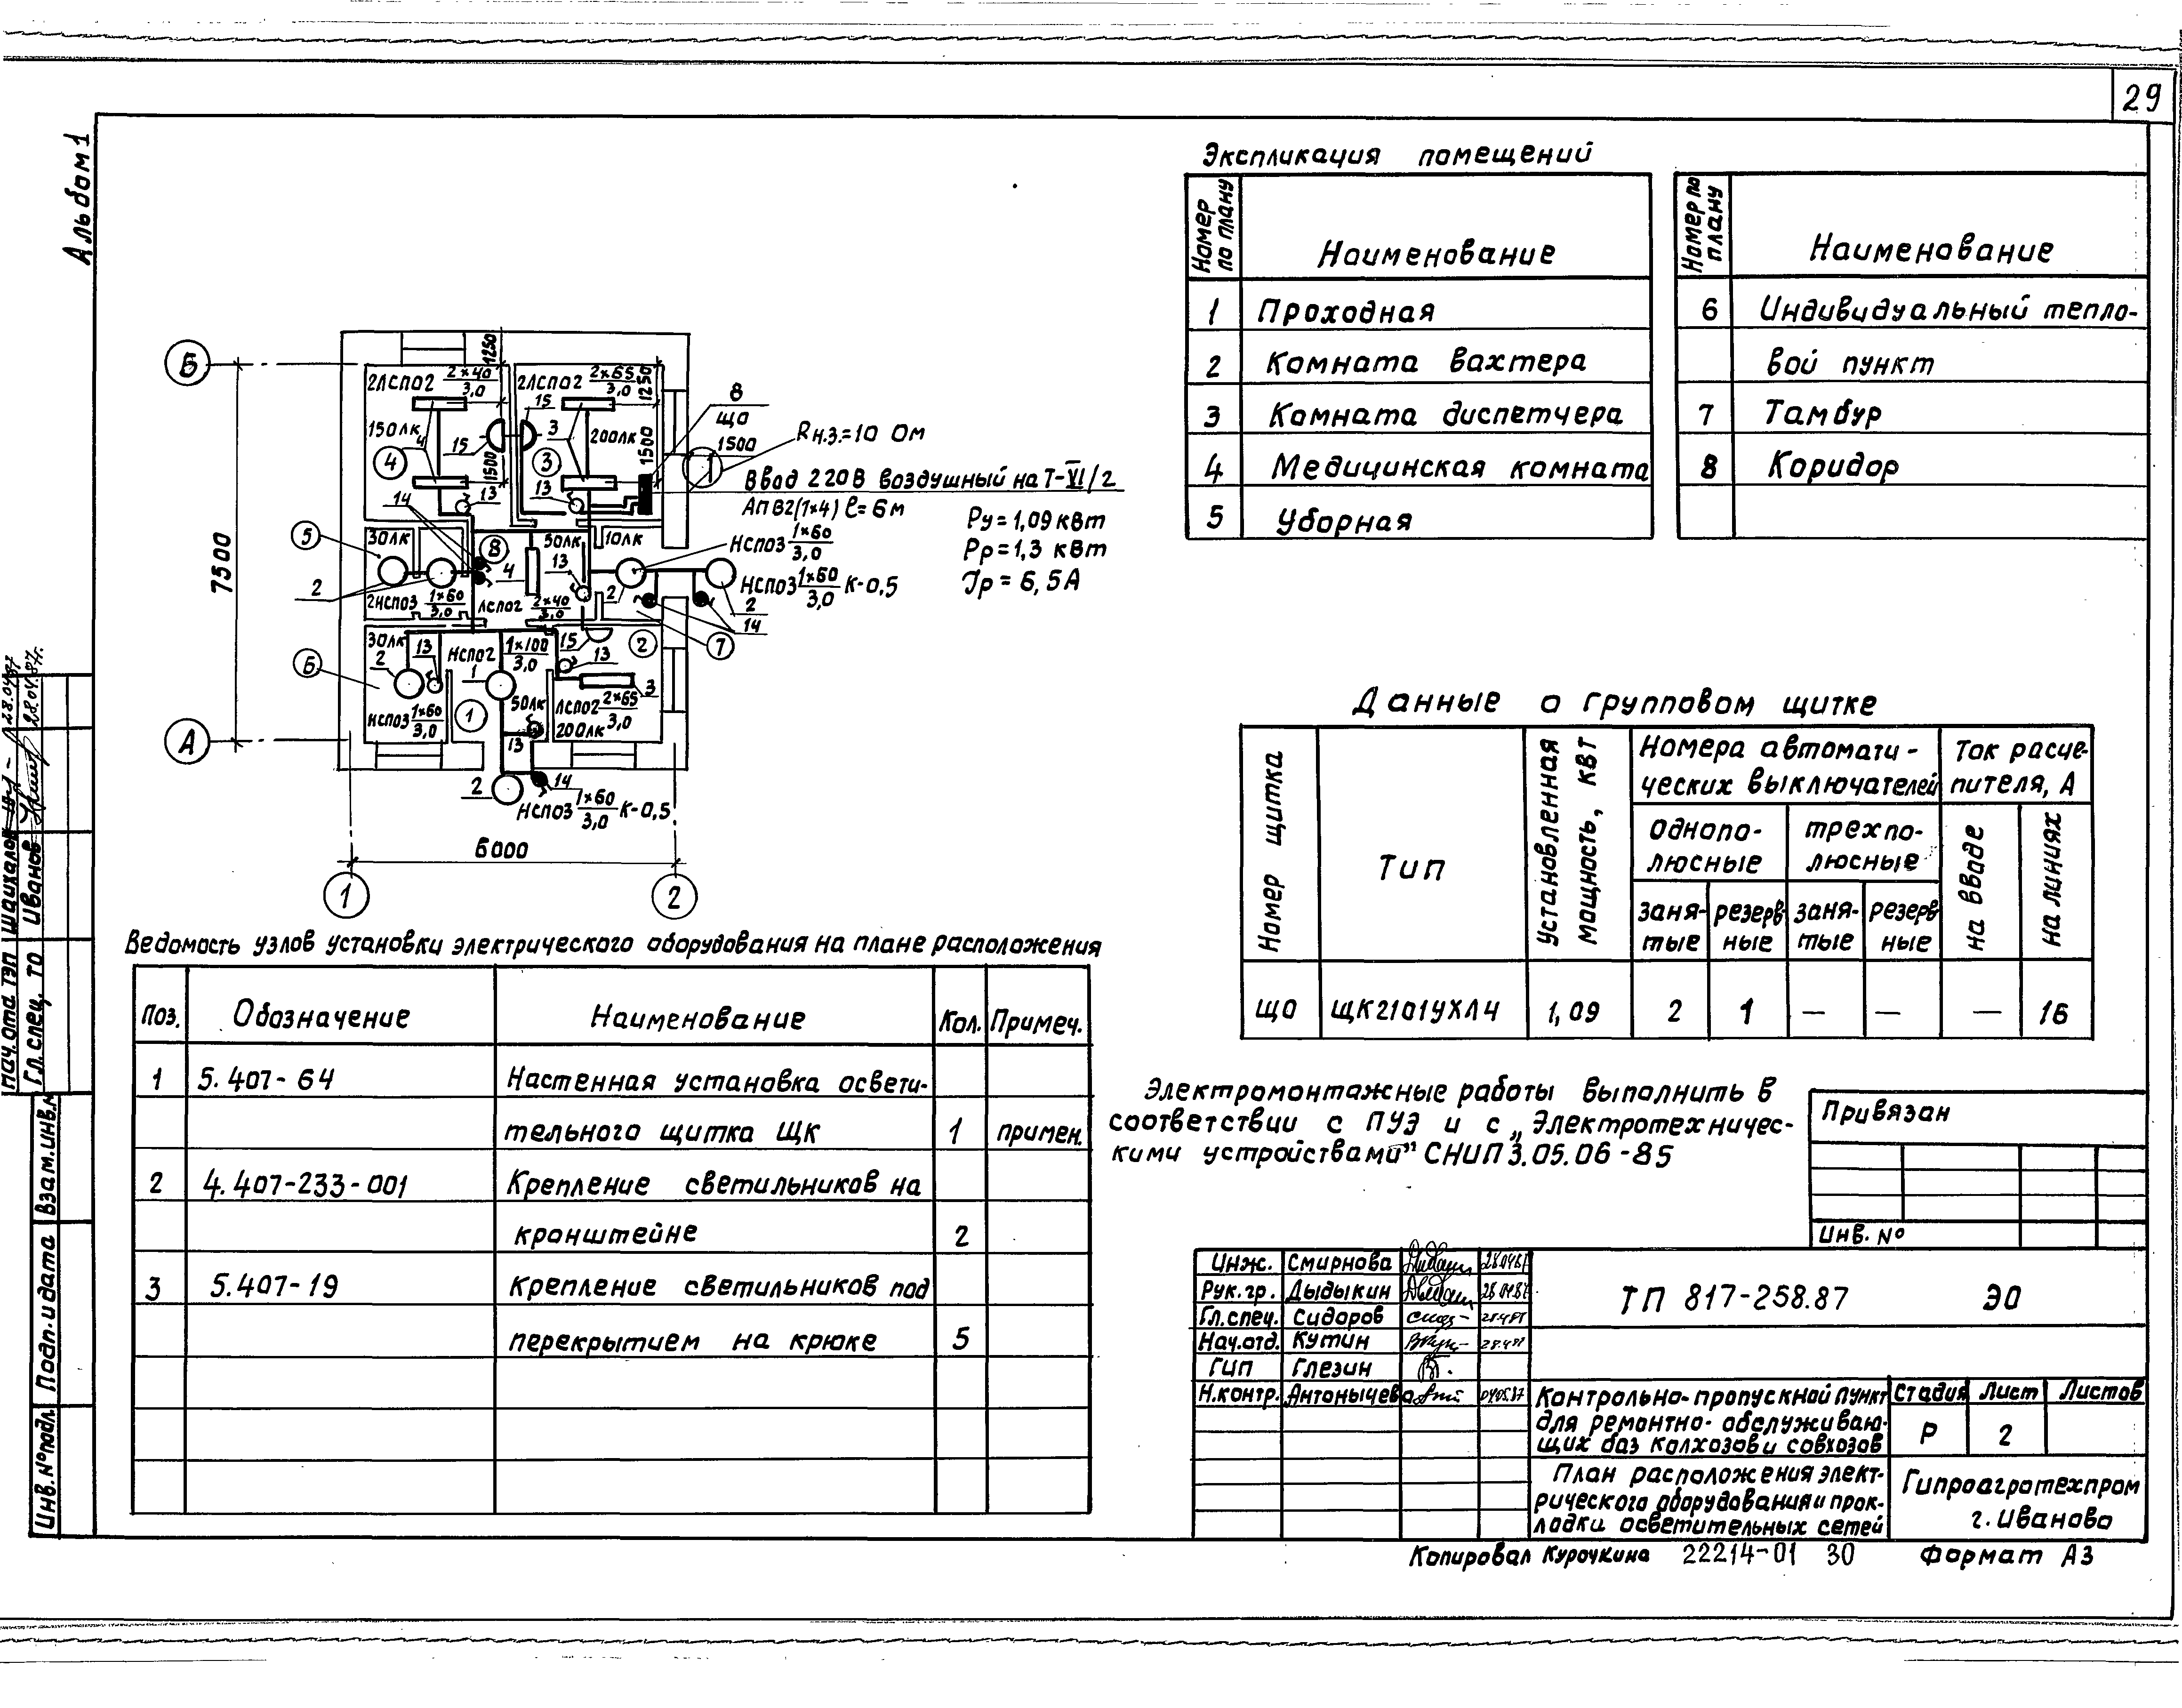 29
Альбом 1
Экспликация помещений
Номер по плану
Наименование
1 Проходная
2 Комната вахтера
3 Комната диспетчера
4 Медицинская комната
5 Уборная
Номер по плану
Наименование
6 Индивидуальный тепло-
вой пункт
7 Тамбур
8 Коридор
Б
А
7500
6000
1
2
2ЛСП02 2×40/3,0
1250
2ЛСП02 2×65/3,0
1250
15
150лк
4
15
3
200лк
1500
4
1500
3
13
13
14
8
ЩО
1500
1
Rн.з.=10 Ом
Ввод 220В воздушный на Т-VI/2
АПВ2(1×4) ℓ=6м
Pу=1,09 кВт
Pр=1,3 кВт
Iр=6,5А
НСП03 1×60/3,0
НСП03 1×60/3,0 К-0,5
5
30лк
8
50лк
10лк
13
4
2
2НСП03 1×60/3,0
ЛСП02 2×40/3,0
2
2
14
7
30лк
2
13
НСП02
1
1×100/3,0
15
13
2
6
3
НСП03 1×60/3,0
1
50лк
ЛСП02 2×65/3,0
200лк
13
2
14
НСП03 1×60/3,0 К-0,5
Ведомость узлов установки электрического оборудования на плане расположения
Поз. Обозначение Наименование Кол. Примеч.
1 5.407-64 Настенная установка освети-
тельного щитка ЩК 1 примен.
2 4.407-233-001 Крепление светильников на
кронштейне 2
3 5.407-19 Крепление светильников под
перекрытием на крюке 5
Данные о групповом щитке
Номер щитка
Тип
Установленная мощность, кВт
Номера автомати-
ческих выключателей
Ток расце-
пителя, А
однопо-
люсные
трехпо-
люсные
на вводе
на линиях
заня-
тые
резерв
ные
заня-
тые
резерв
ные
ЩО ЩК2101УХЛ4 1,09 2 1 — — — 16
Электромонтажные работы выполнить в
соответствии с ПУЭ и с „Электротехничес-
кими устройствами" СНИП 3.05.06-85
Привязан
Инв. №
Инж. Смирнова
Рук.гр. Дыдыкин
Гл.спец. Сидоров
Нач.отд. Кутин
ГИП Глезин
Н.контр. Антонычева
ТП 817-258.87 ЭО
Контрольно-пропускной пункт
для ремонтно-обслуживаю-
щих баз колхозов и совхозов
Стадия Лист Листов
Р 2
План расположения элект-
рического оборудования и прок-
ладки осветительных сетей
Гипроагротехпром
г. Иваново
Копировал Курочкина 22214-01 30 Формат А3
Нач. отд ТЭП Шихалов
Гл. спец. ТО Иванов
Взам.инв.№
Подп. и дата
Инв.№подл.